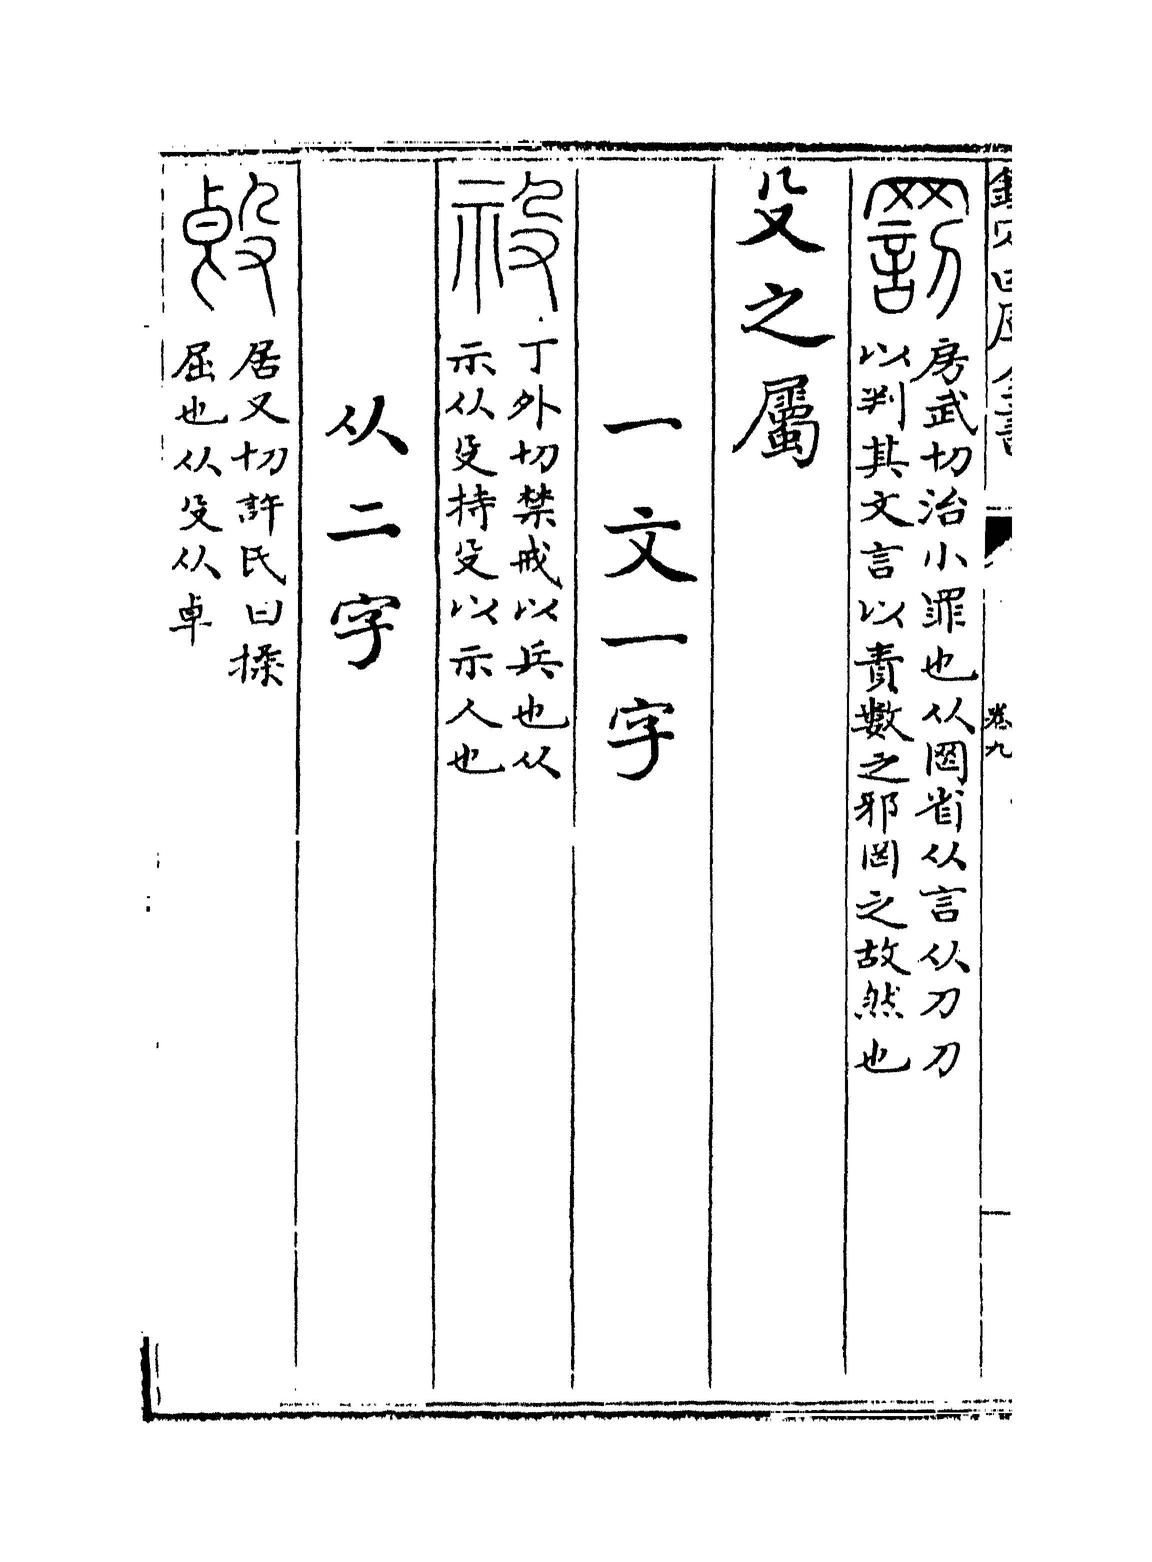 欽定四庫全書
卷九
罰
房武切治小罪也从罔省从言从刀刀
以判其文言以責數之邪罔之故然也
殳之屬
一文一字
祋
丁外切禁戒以兵也从
示从殳持殳以示人也
从二字
𣪘
居又切許氏曰揉
屈也从殳从卓